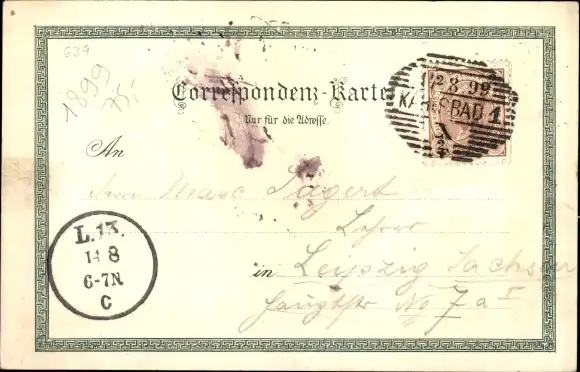 639
1899
75,-
Correspondenz-Karte
Nur für die Adresse.
12 8 99
KARLSBAD 1
An
Herrn Max Sägert
Lehrer
in Leipzig Sachsen
No 7 a I
L.13.
14 8
6-7N
C